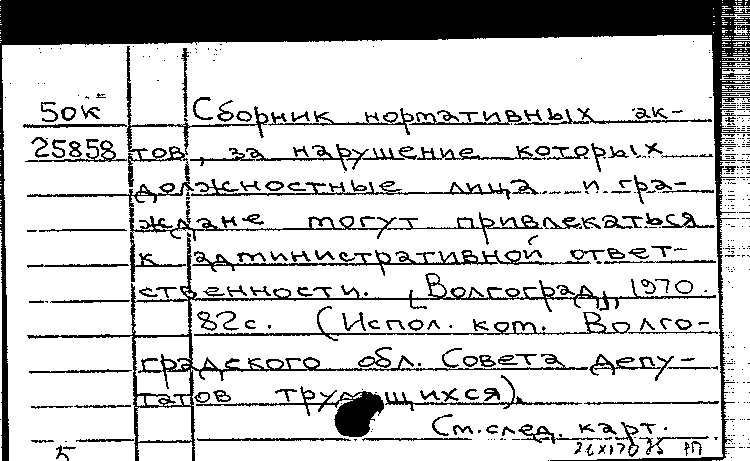 50к Сборник нормативных ак-
25858 тов, за нарушение которых
должностные лица и гра-
ждане могут привлекаться
к административной ответ-
ственности. [Волгоград], 1970.
82с. (Испол. ком. Волго-
градского обл. Совета депу-
татов трудящихся).
См.след. карт.
5